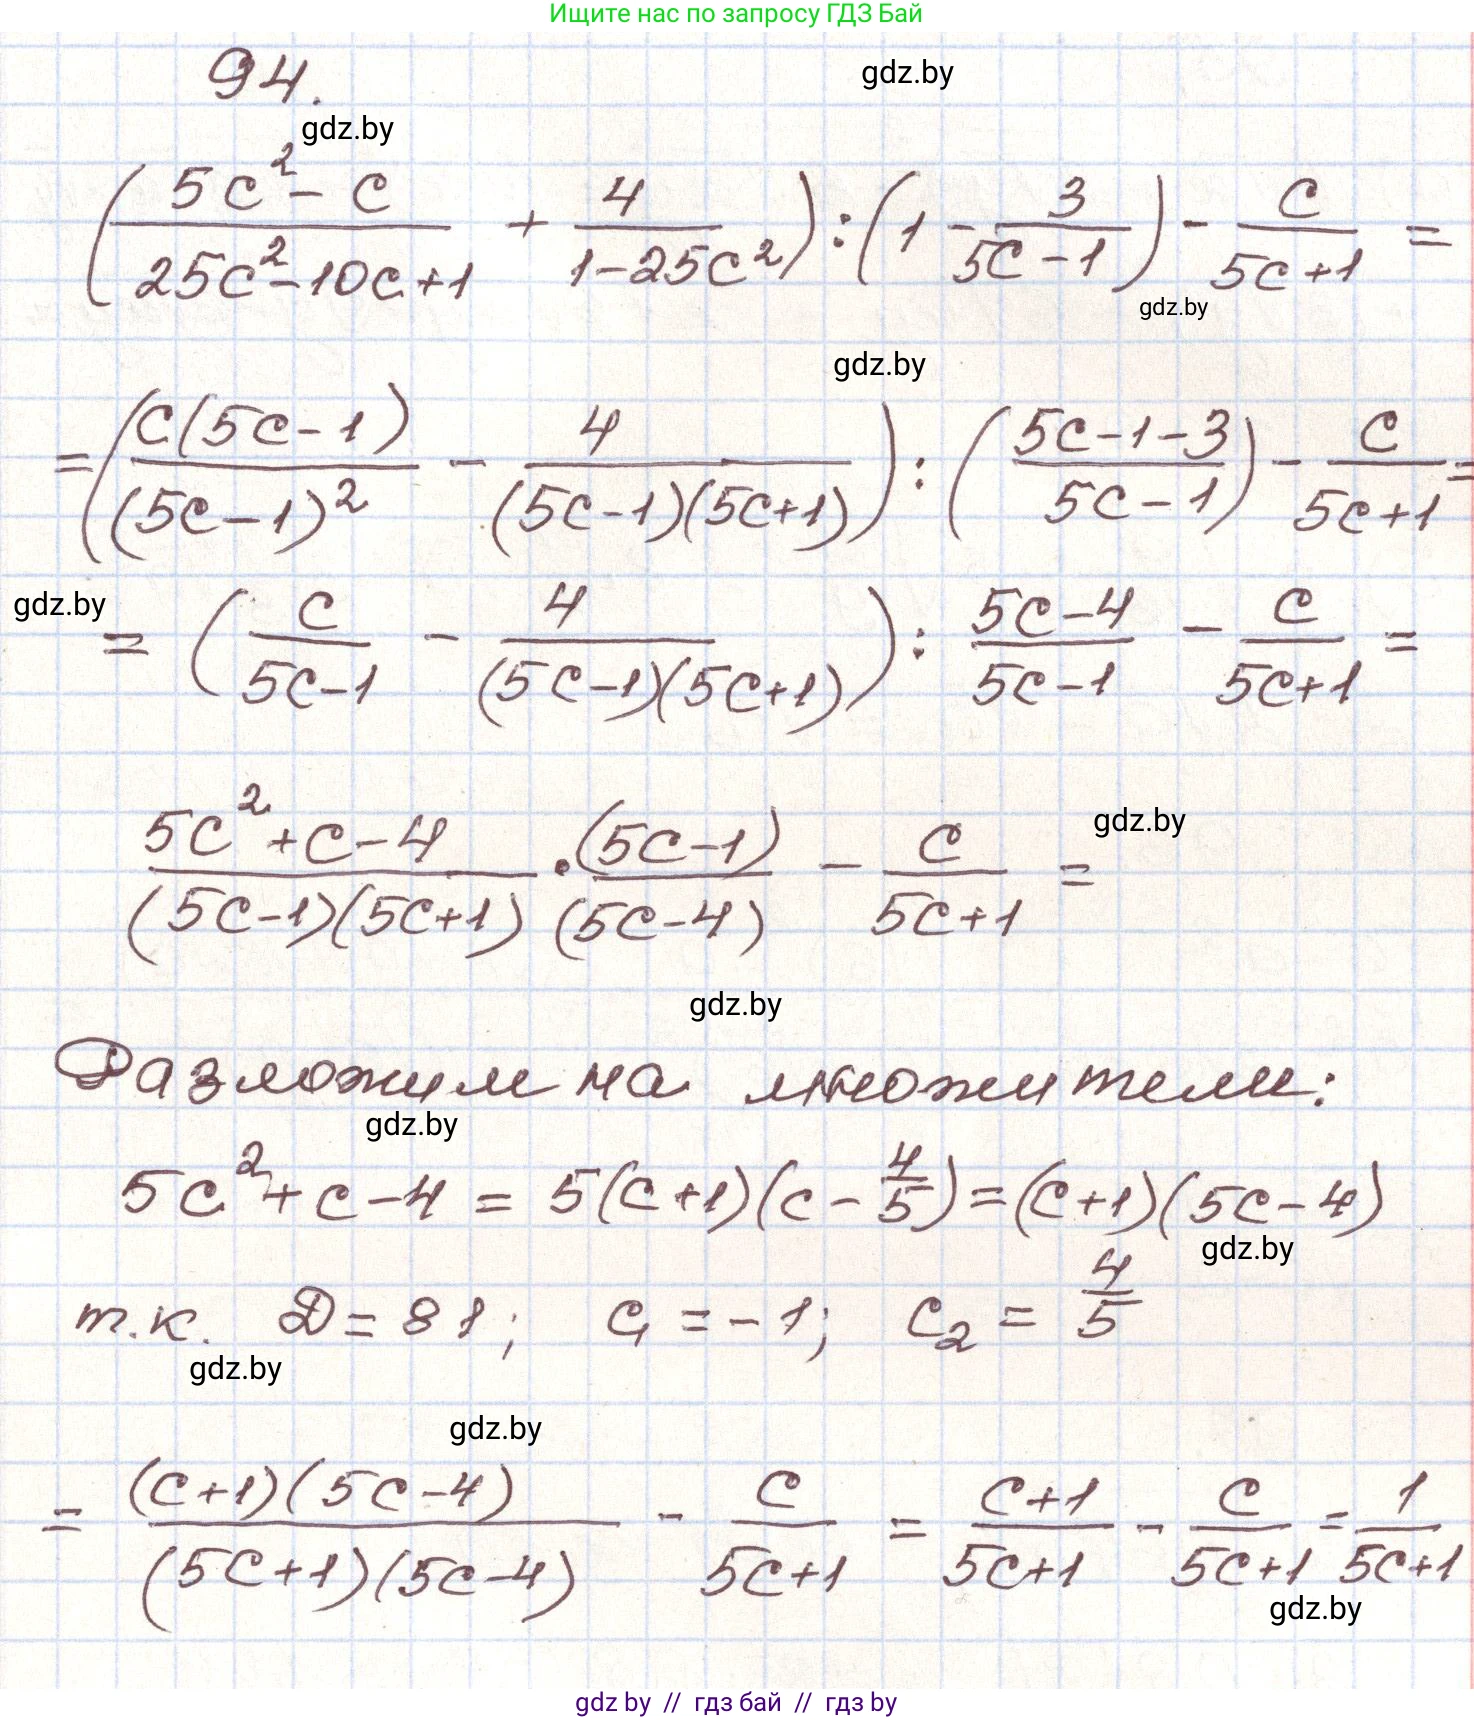 Ищите нас по запросу ГДЗ Бай
94.
gdz.by
gdz.by
(5c²-c / 25c²-10c+1 + 4 / 1-25c²) : (1 - 3 / 5c-1) - c / 5c+1 =
gdz.by
gdz.by
= (c(5c-1) / (5c-1)² - 4 / (5c-1)(5c+1)) : (5c-1-3 / 5c-1) - c / 5c+1 =
gdz.by
= (c / 5c-1 - 4 / (5c-1)(5c+1)) : 5c-4 / 5c-1 - c / 5c+1 =
gdz.by
5c²+c-4 / (5c-1)(5c+1) · (5c-1) / (5c-4) - c / 5c+1 =
gdz.by
Разложим на множители:
gdz.by
5c²+c-4 = 5(c+1)(c-4/5) = (c+1)(5c-4)
gdz.by
т.к. D=81; c₁=-1; c₂=4/5
gdz.by
gdz.by
= (c+1)(5c-4) / (5c+1)(5c-4) - c / 5c+1 = c+1 / 5c+1 - c / 5c+1 = 1 / 5c+1
gdz.by
gdz by // гдз бай // гдз by